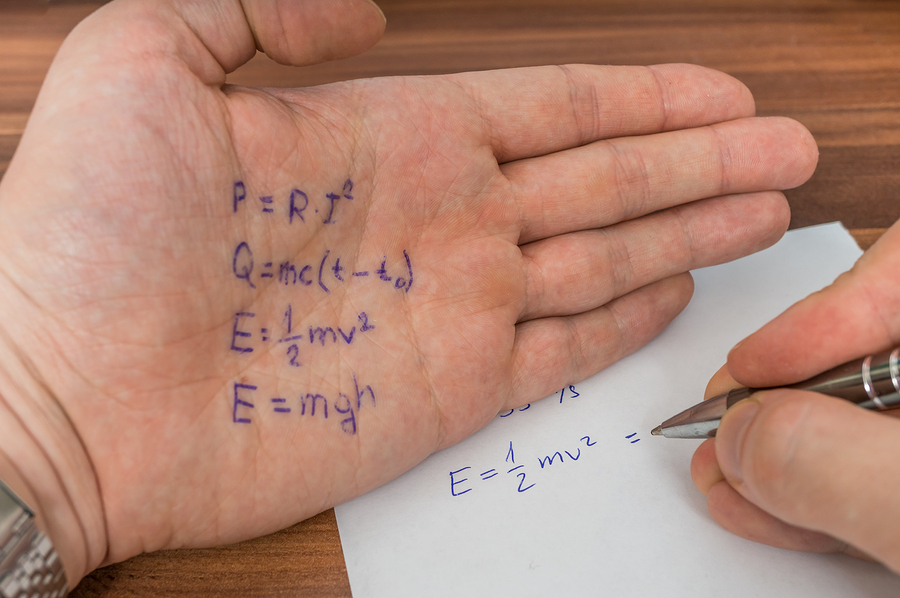 P = R·I²
Q = mc(t - t₀)
E = ½mv²
E = mgh
E = ½ mv² =